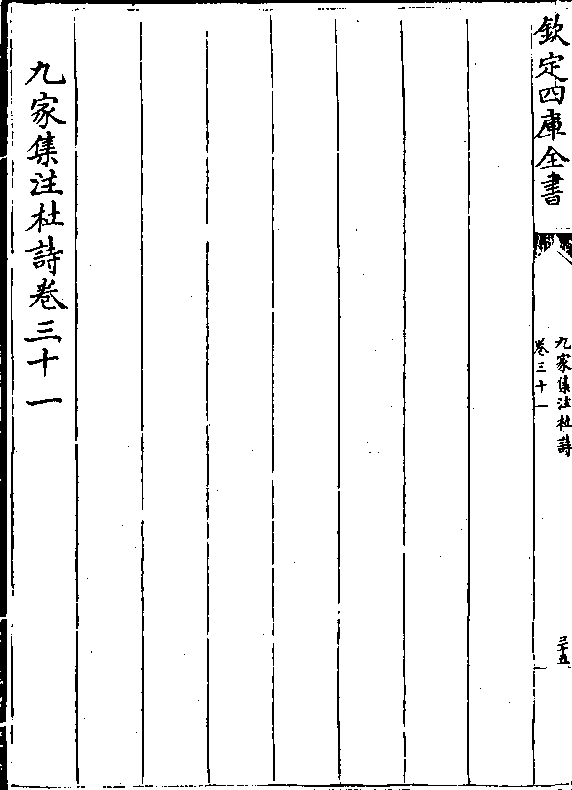 欽定四庫全書
九家集注杜詩
卷三十一
三十五
九家集注杜詩卷三十一